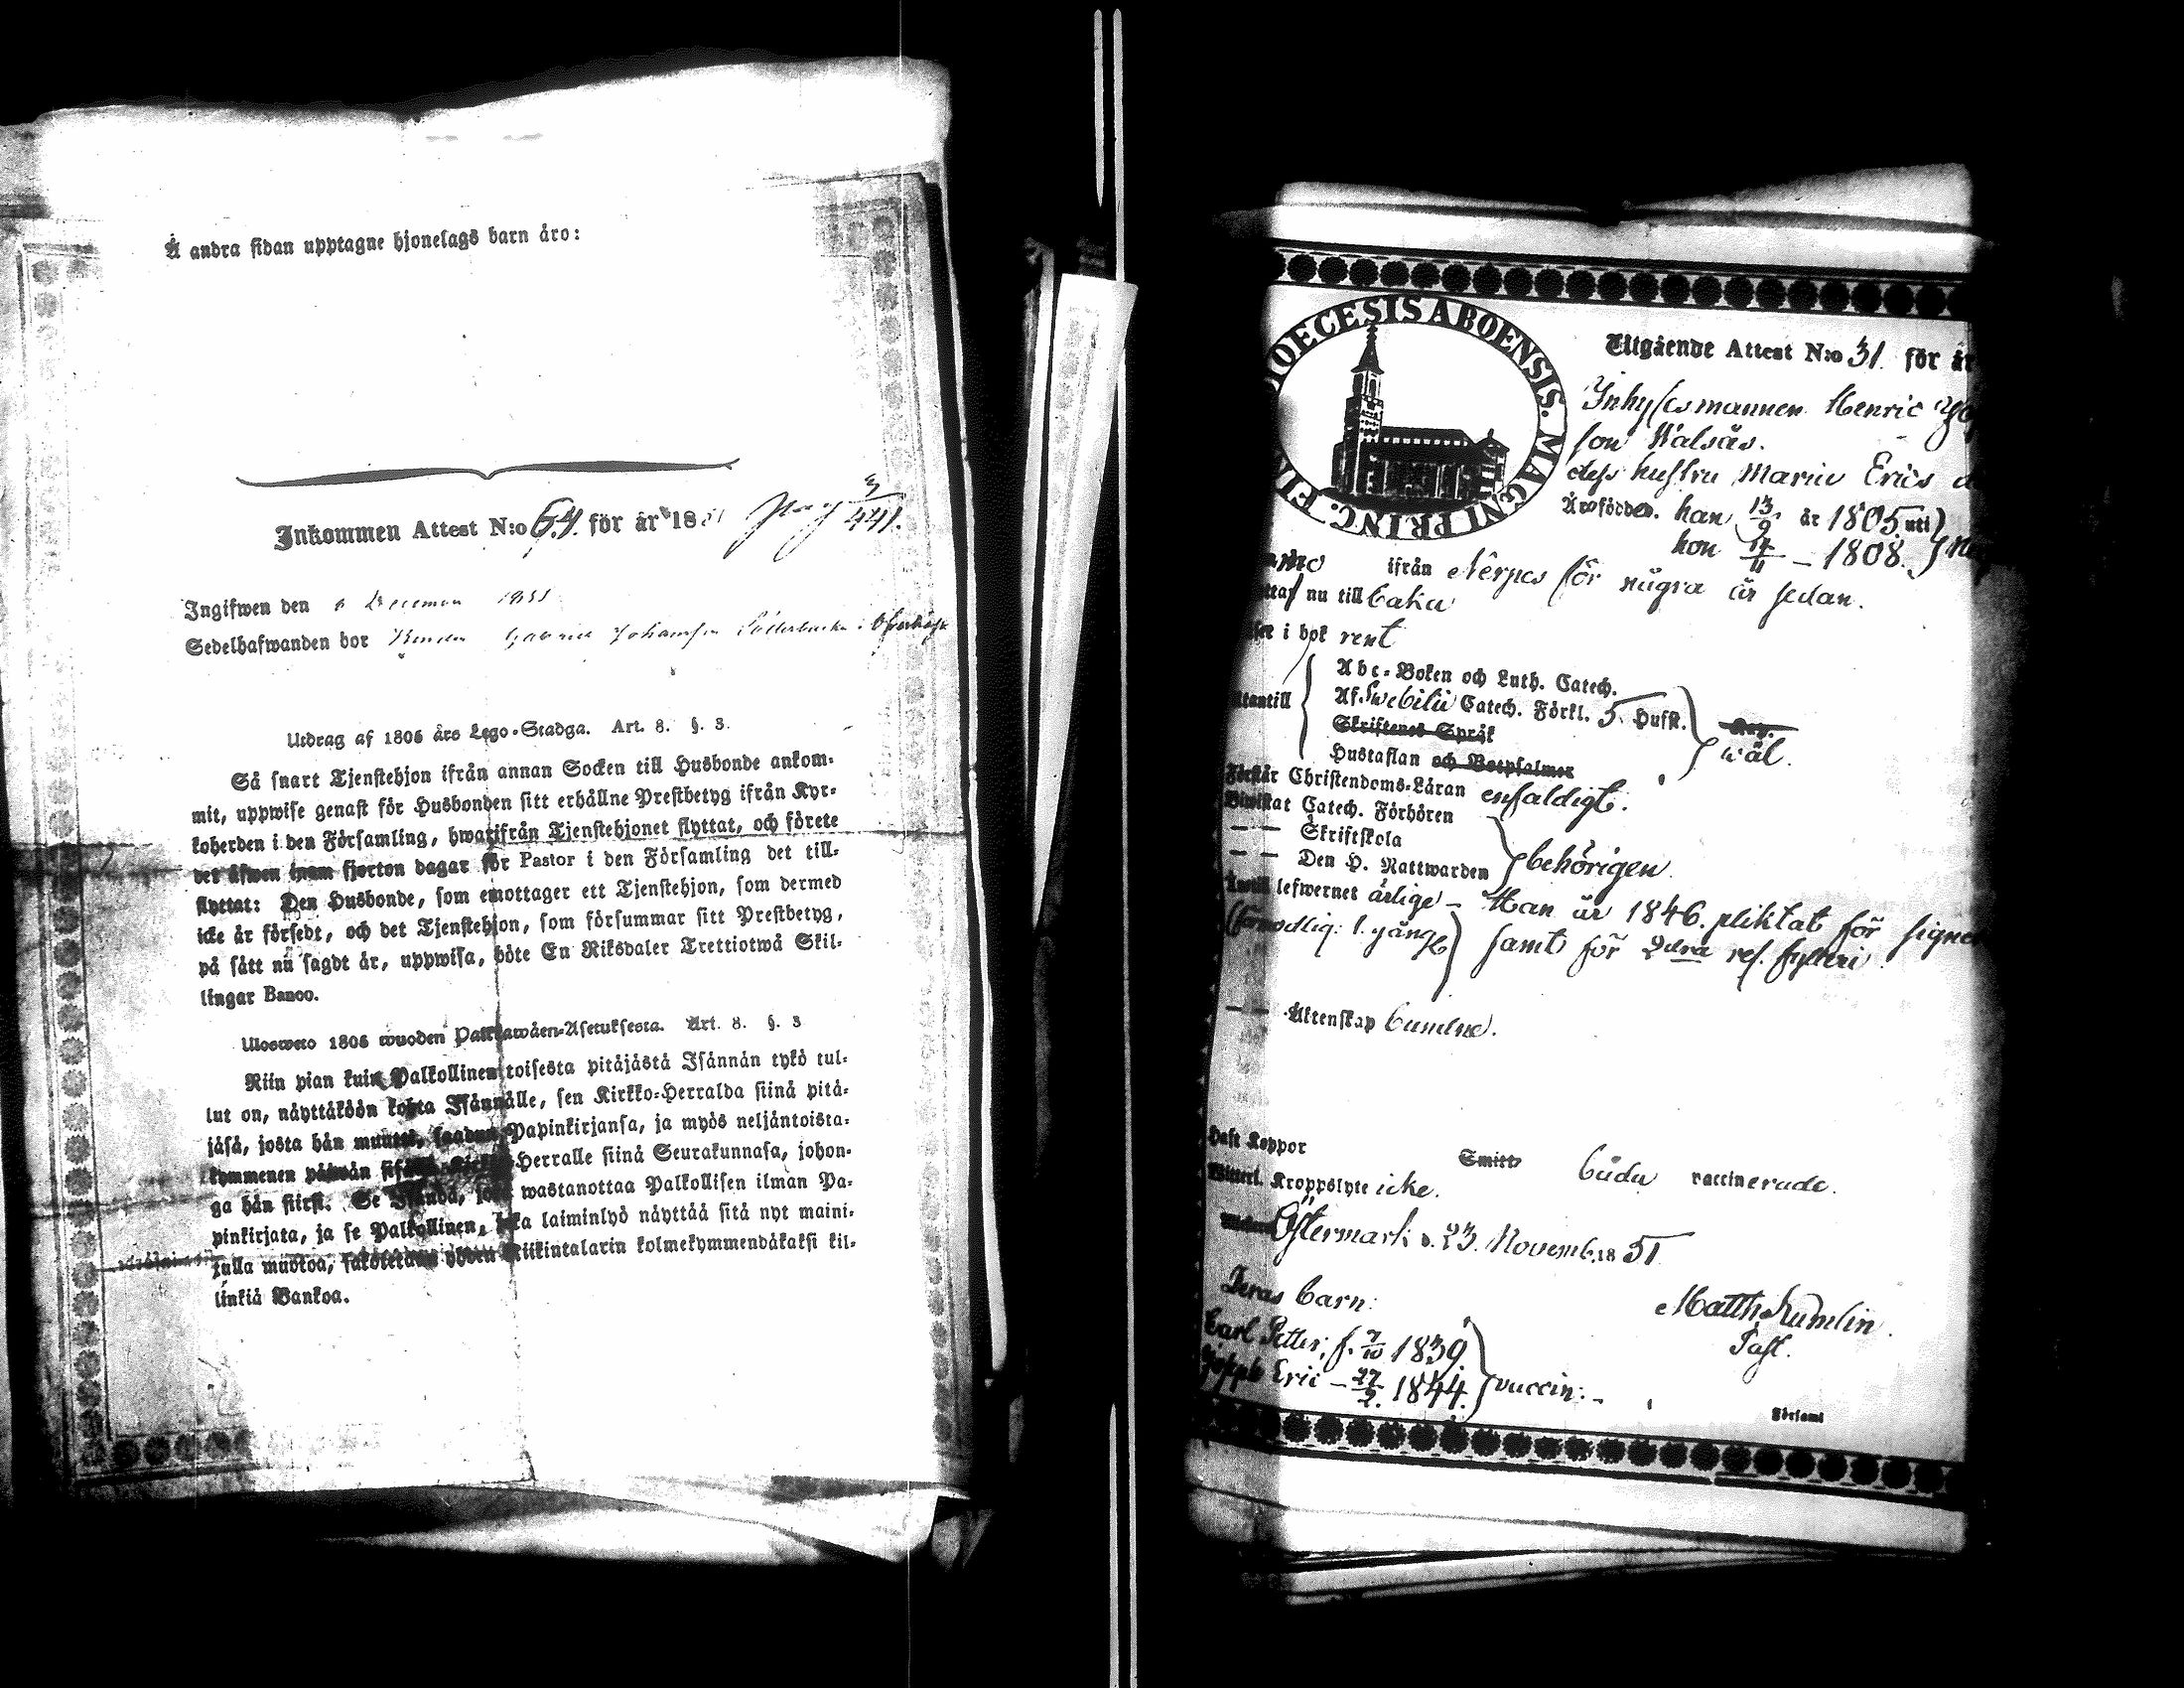 Å andra sidan upptagne hjonelags barn äro:
Inkommen Attest N:o 64. för år 18
3/441.
Ingifwen den 6 Decemen 1851
Sedelhafwanden bor Johansson
Utdrag af 1806 års Lego-Stadga. Art. 8. §. 3.
Så snart Tjenstehjon ifrån annan Socken till Husbonde ankom-
mit, uppwise genast för Husbonden sitt erhållne Prestbetyg ifrån Kyr-
koherden i den Församling, hwarifrån Tjenstehjonet flyttat, och förete
det äfwen inom fjorton dagar för Pastor i den Församling det till-
flyttat: Den Husbonde, som emottager ett Tjenstehjon, som dermed
icke är försedt, och det Tjenstehjon, som försummar sitt Prestbetyg,
på sätt nu sagdt är, uppwisa, böte En Riksdaler Trettiotwå Skil-
lingar Banco.
Ulosweto 1806 wuoden Palkkawäen-Asetuksesta. Art. 8. §. 3
Niin pian kuin Palkollinen toisesta pitäjästä Isännän tykö tul-
lut on, näyttäköön kohta Isännälle, sen Kirkko-Herralda siinä pitä-
jäsä, josta hän muutti, saadun Papinkirjansa, ja myös neljäntoista-
kymmenen päiwän sisällä Kirkko-Herralle siinä Seurakunnasa, johon-
ga hän siirsi. Se Isändä, joka wastanottaa Palkollisen ilman Pa-
pinkirjata, ja se Palkollinen, joka laiminlyö näyttää sitä nyt maini-
tulla muotoa, sakotetaan yhden Riikintalarin kolmekymmendäkaksi kil-
linkiä Bankoa.
DIOECESIS ABOENSIS. MAGNI PRINC. FIN
Utgående Attest N:o 31. för år
Inhysesmannen Henric
son Kalsås.
dess hustru Maria Erics
Äro födde. han 13/9 år 1805 uti
hon 17/11 – 1808.
ifrån Nerpes för några år sedan.
nu tillbaka
i bok rent
Abc-Boken och Luth. Catech.
utantill Af Swebilii Catech. Förkl. 5. Hufst.
Skriftenes Språk
wäl.
Hustaflan och Botpsalmer
Förstår Christendoms-Läran enfaldigt.
Biwistat Catech. Förhören
— — Skriftskola
— — Den H. Nattwarden
behörigen.
lefwernet ärlige – Han är 1846. pliktat för
1. gång
samt för 2dra res. fylleri.
— — Äktenskap bundne.
Haft Koppor Smitt båda vaccinerade.
Kroppslyte icke.
Östermark d. 23. Novemb. 1851
Deras barn:
Matth. Kumlin.
Past.
Carl Petter, f. 7/10 1839.
Joseph Eric – 27/2. 1844.
vaccin:
Församl